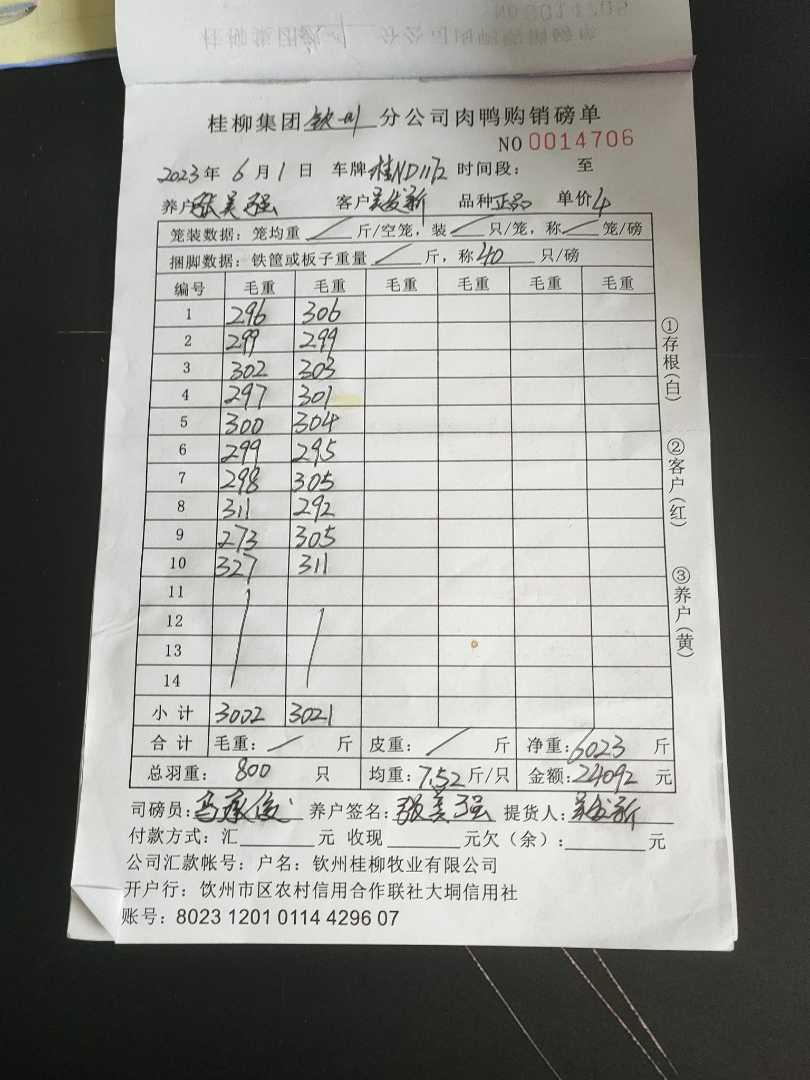 桂柳集团钦州分公司肉鸭购销磅单
NO 0014706
2023年6月1日 车牌桂ND1172 时间段: 至
养户张美强 客户吴发新 品种正品 单价4
笼装数据: 笼均重/斤/空笼, 装/只/笼, 称/笼/磅
捆脚数据: 铁筐或板子重量/斤, 称40只/磅
编号 毛重 毛重 毛重 毛重 毛重 毛重
1 296 306
2 299 299
3 302 303
4 297 301
5 300 304
6 299 295
7 298 305
8 311 292
9 273 305
10 327 311
11
12
13
14
小计 3002 3021
合计 毛重: / 斤 皮重: / 斤 净重: 6023 斤
总羽重: 800 只 均重: 7.52斤/只 金额: 24092 元
司磅员: 养户签名: 张美强 提货人: 吴发新
付款方式: 汇____元 收现____元欠(余): ____元
公司汇款帐号: 户名: 钦州桂柳牧业有限公司
开户行: 饮州市区农村信用合作联社大垌信用社
账号: 8023 1201 0114 4296 07
①存根(白)
②客户(红)
③养户(黄)